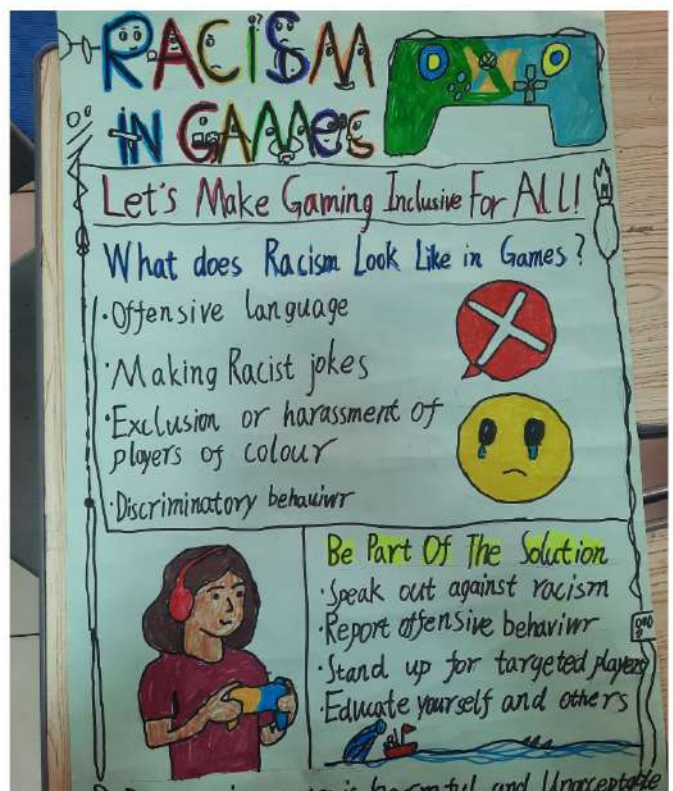 RACISM
IN GAMES
Let's Make Gaming Inclusive For All!
What does Racism Look Like in Games?
·Offensive language
·Making Racist jokes
·Exclusion or harassment of
players of colour
·Discriminatory behaviwr
Be Part Of The Solution
·Speak out against racism
·Report offensive behaviwr
·Stand up for targeted players
·Educate yourself and others
is harmful and Unacceptable